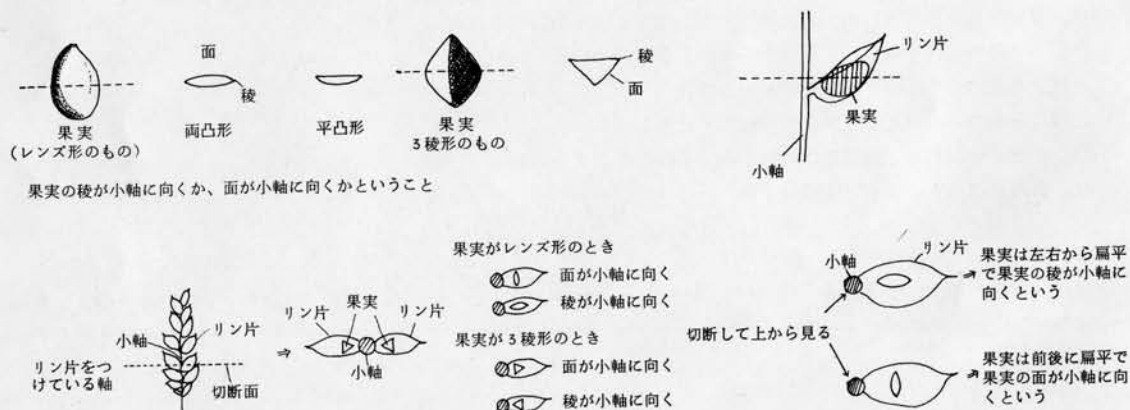 面
稜
果実
(レンズ形のもの)
両凸形
平凸形
果実
3稜形のもの
稜
面
リン片
果実
小軸
果実の稜が小軸に向くか、面が小軸に向くかということ
小軸
リン片
リン片をつ
けている軸
切断面
⇒
リン片
果実
リン片
小軸
果実がレンズ形のとき
面が小軸に向く
稜が小軸に向く
果実が3稜形のとき
面が小軸に向く
稜が小軸に向く
小軸
リン片
切断して上から見る
⇒ 果実は左右から扁平
で果実の稜が小軸に
向くという
⇒ 果実は前後に扁平で
果実の面が小軸に向
くという